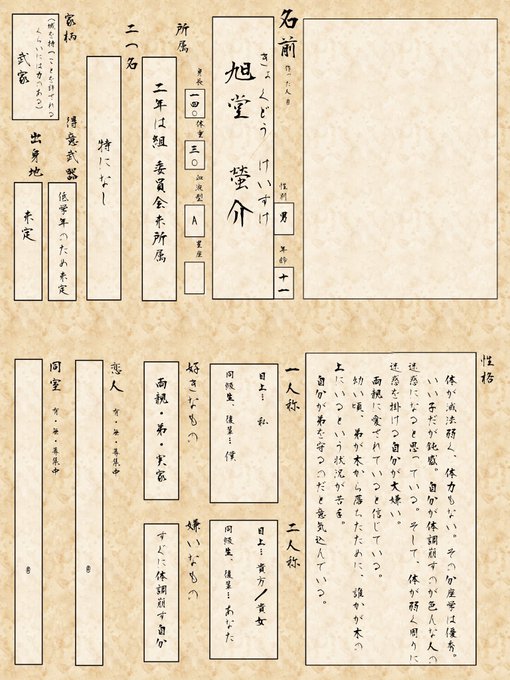 名前
作った人 @
きょくどう けいすけ
旭堂 螢介
性別
男
年齢
十一
身長
一四〇
体重
三〇
血液型
A
星座
所属
二年は組 委員会未所属
二つ名
特になし
家柄
武家
得意武器
低学年のため未定
出身地
未定
性格
体が滅法弱く、体力もない。その分座学は優秀。
いい子だが鈍感。自分が体調崩すのが色んな人の
迷惑になると思っている。そして、体が弱く周りに
迷惑を掛ける自分が大嫌い。
両親に愛されていると信じている。
幼い頃、弟が木から落ちたために、誰かが木の
上にいるという状況が苦手。
自分が弟を守るのだと意気込んでいる。
一人称
目上…私
同級生、後輩…僕
二人称
目上…貴方/貴女
同級生、後輩…あなた
好きなもの
両親・弟・実家
嫌いなもの
すぐに体調崩す自分
恋人
有・無・募集中
@
同室
有・無・募集中
@